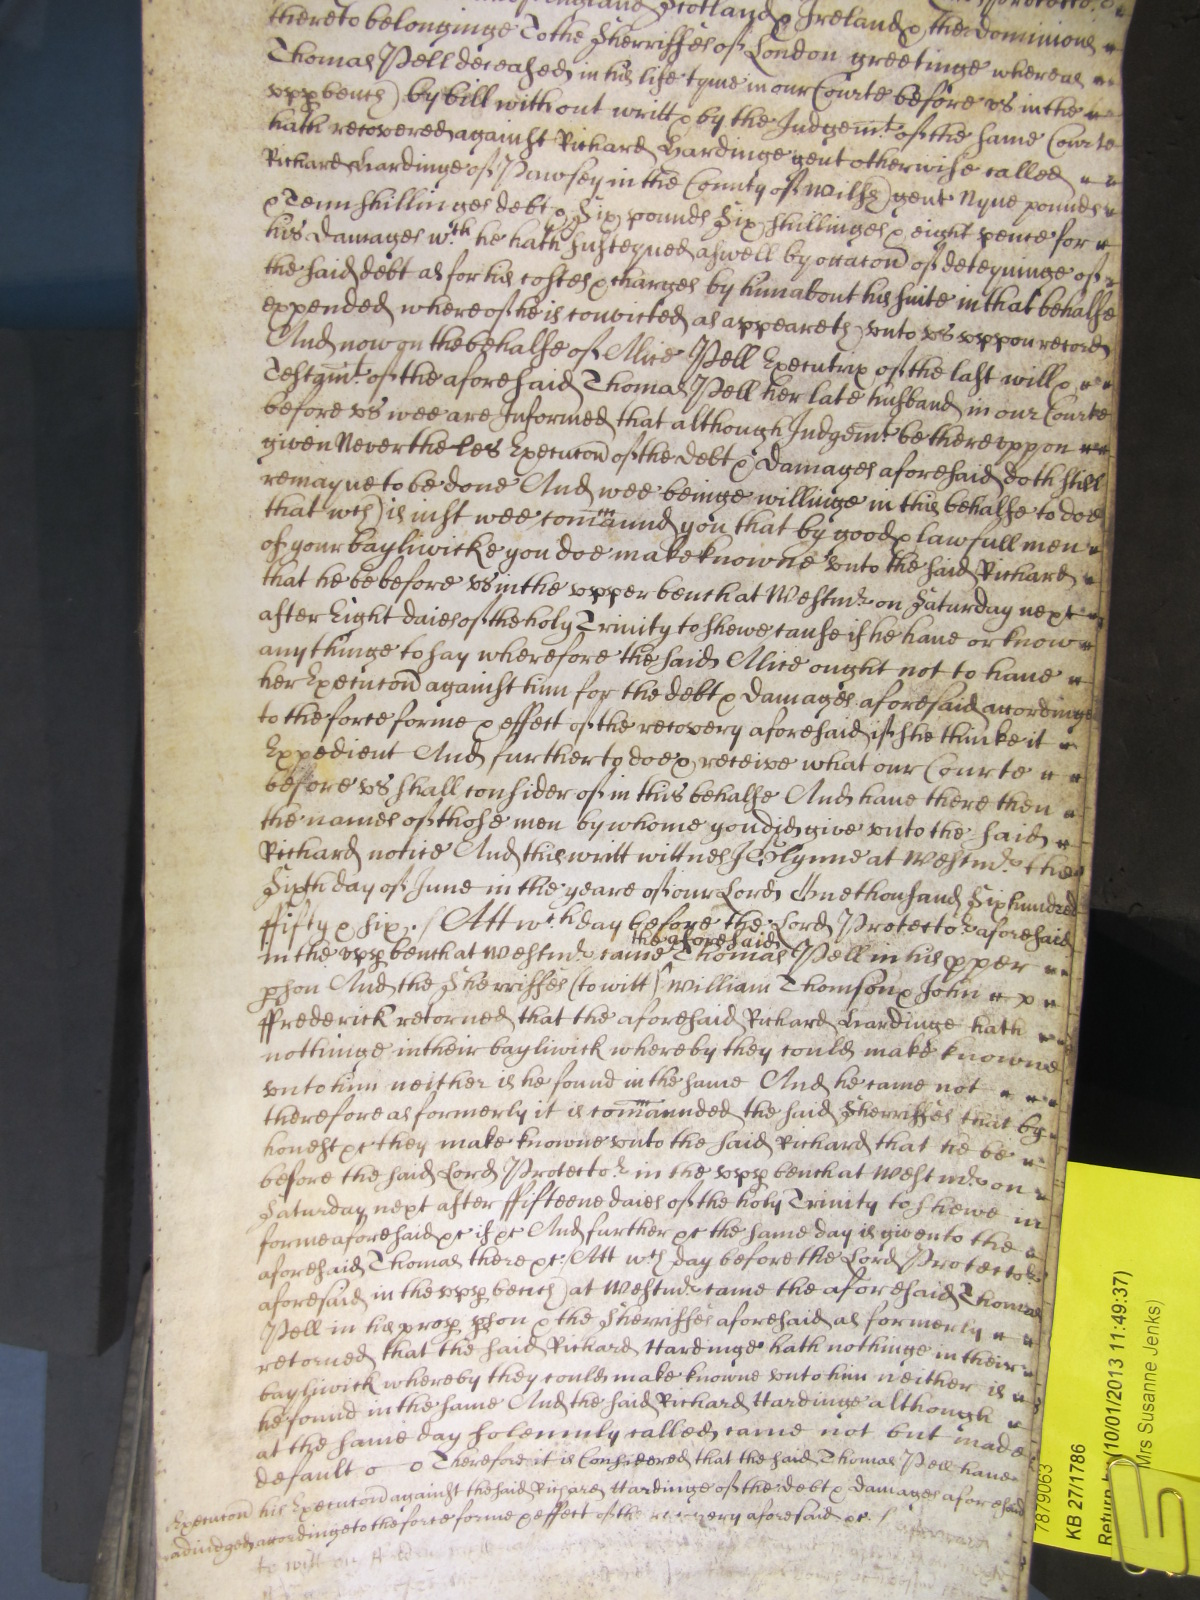 England Scotland & Ireland & the dominions
thereto belonginge To the Sherriffes of London greetinge whereas
Thomas Pell deceased in his life tyme in our Courte before us in the
upp bench by bill without writt & by the Judgemt of the same Courte
hath recovered against Richard Hardinge gent otherwise called
Richard Hardinge of Pawsey in the County of Wilts gent Nyne pounds
& Tenn shillinges debt & Six pounds Six shillinges & eight pence for
his damages wch he hath susteyned aswell by occacon of deteyninge of
the said debt as for his costes & charges by him about his suite in that behalfe
expended whereof he is convicted as appeareth unto us uppon record
And now on the behalfe of Alice Pell Executrix of the last will &
Testamt of the aforesaid Thomas Pell her late husband in our Courte
before us wee are Informed that although Judgemt be thereuppon
given Neverthe les Execucon of the debt & damages aforesaid doth still
remayne to be done And wee beinge willinge in this behalfe to doe
that wch is just wee comaund you that by good & lawfull men
of your bayliwicke you doe make knowne unto the said Richard
that he be before us in the upper bench at Westmr on Saturday next
after Eight daies of the holy Trinity to shewe cause if he have or know
any thinge to say wherefore the said Alice ought not to have
her Execucon against him for the debt & damages aforesaid accordinge
to the force forme & effect of the recovery aforesaid if she thinke it
Expedient And further to doe & receive what our Courte
before us shall consider of in this behalfe And have there then
the names of those men by whome you did give unto the said
Richard notice And this writt wittnes J Glynne at Westmr the
Sixth day of June in the yeare of our Lord One thousand Six hundred
fifty & six. Att wch day before the Lord Protector aforesaid
in the upp bench at Westmr came the aforesaid Thomas Pell in his pper
pson And the Sherriffes (to witt) William Thomson & John
ffrederick retorned that the aforesaid Richard Hardinge hath
nothinge in their bayliwick whereby they could make knowne
unto him neither is he found in the same And he came not
therefore as formerly it is comaunded the said Sherriffes that by
honest &c they make knowne unto the said Richard that he be
before the said Lord Protector in the upp bench at Westmr on
Saturday next after ffifteene daies of the holy Trinity to shewe in
forme aforesaid &c if &c And further &c the same day is given to the
aforesaid Thomas there &c: Att wch day before the Lord Protector
aforesaid in the upp bench at Westmr came the aforesaid Thomas
Pell in his prop pson & the Sherriffes aforesaid as formerly
retorned that the said Richard Hardinge hath nothinge in their
bayliwick whereby they could make knowne unto him neither is
he found in the same And the said Richard Hardinge although
at the same day solemnly called came not but made
default Therefore it is Considered that the said Thomas Pell have
Execucon his Execucon against the said Richard Hardinge of the debt & damages aforesaid
adiudged accordinge to the force forme & effect of the recovery aforesaid &c.
to witt on
7879063
KB 27/1786
Return (10/01/2013 11:49:37)
Mrs Susanne Jenks)